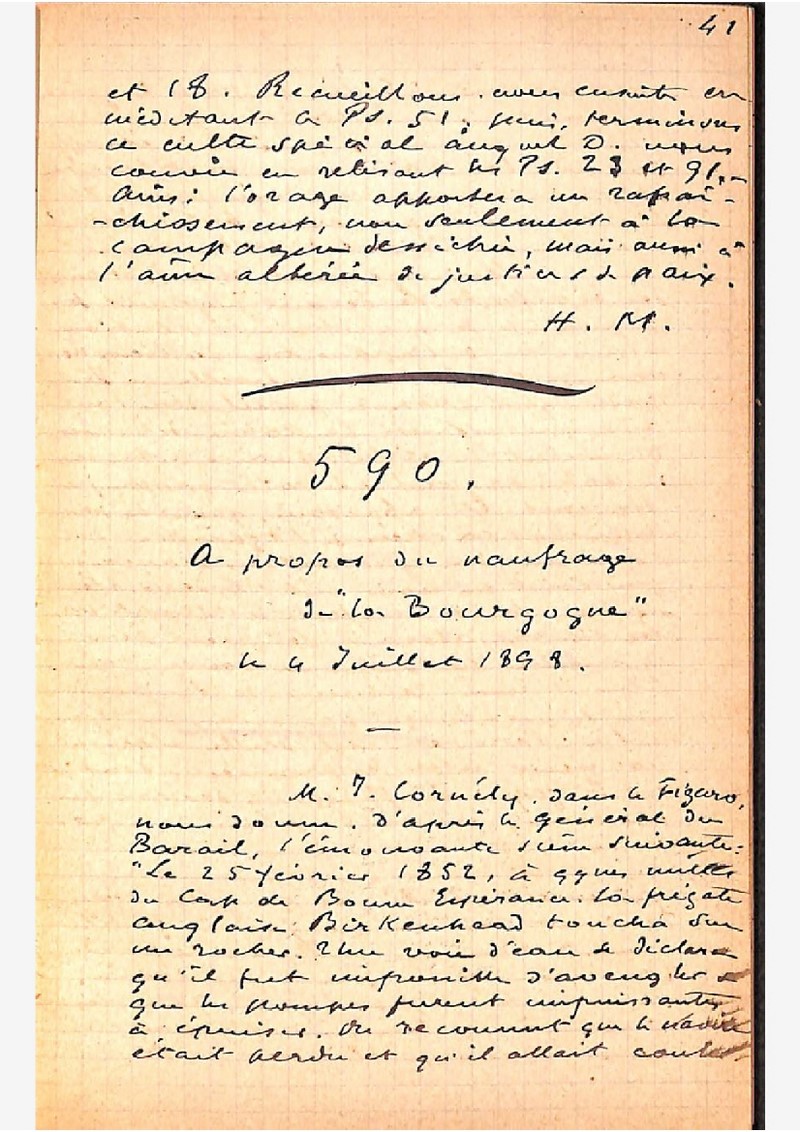 41
et 18. Recueillons nous ensuite en
méditant le Ps. 51. puis, terminons
ce culte spécial auquel D. nous
convie en relisant les Ps. 23 et 91.-
Ainsi l'orage apportera un rafraî-
-chissement, non seulement à la
campagne desséchée, mais aussi à
l'âme altérée de justice & de paix.
H. M.
590.
A propos du naufrage
de "la Bourgogne"
le 4 Juillet 1898.
—
M. J. Cornély, dans le Figaro,
nous donne, d'après le général du
Barail, l'émouvante scène suivante:
"Le 25 février 1852, à qques milles
du Cap de Bonne Espérance, la frégate
anglaise Birkenhead toucha sur
un rocher. Une voie d'eau se déclara
qu'il fut impossible d'aveugler &
que les pompes furent impuissantes
à épuiser. On reconnut que le navire
était perdu et qu'il allait couler